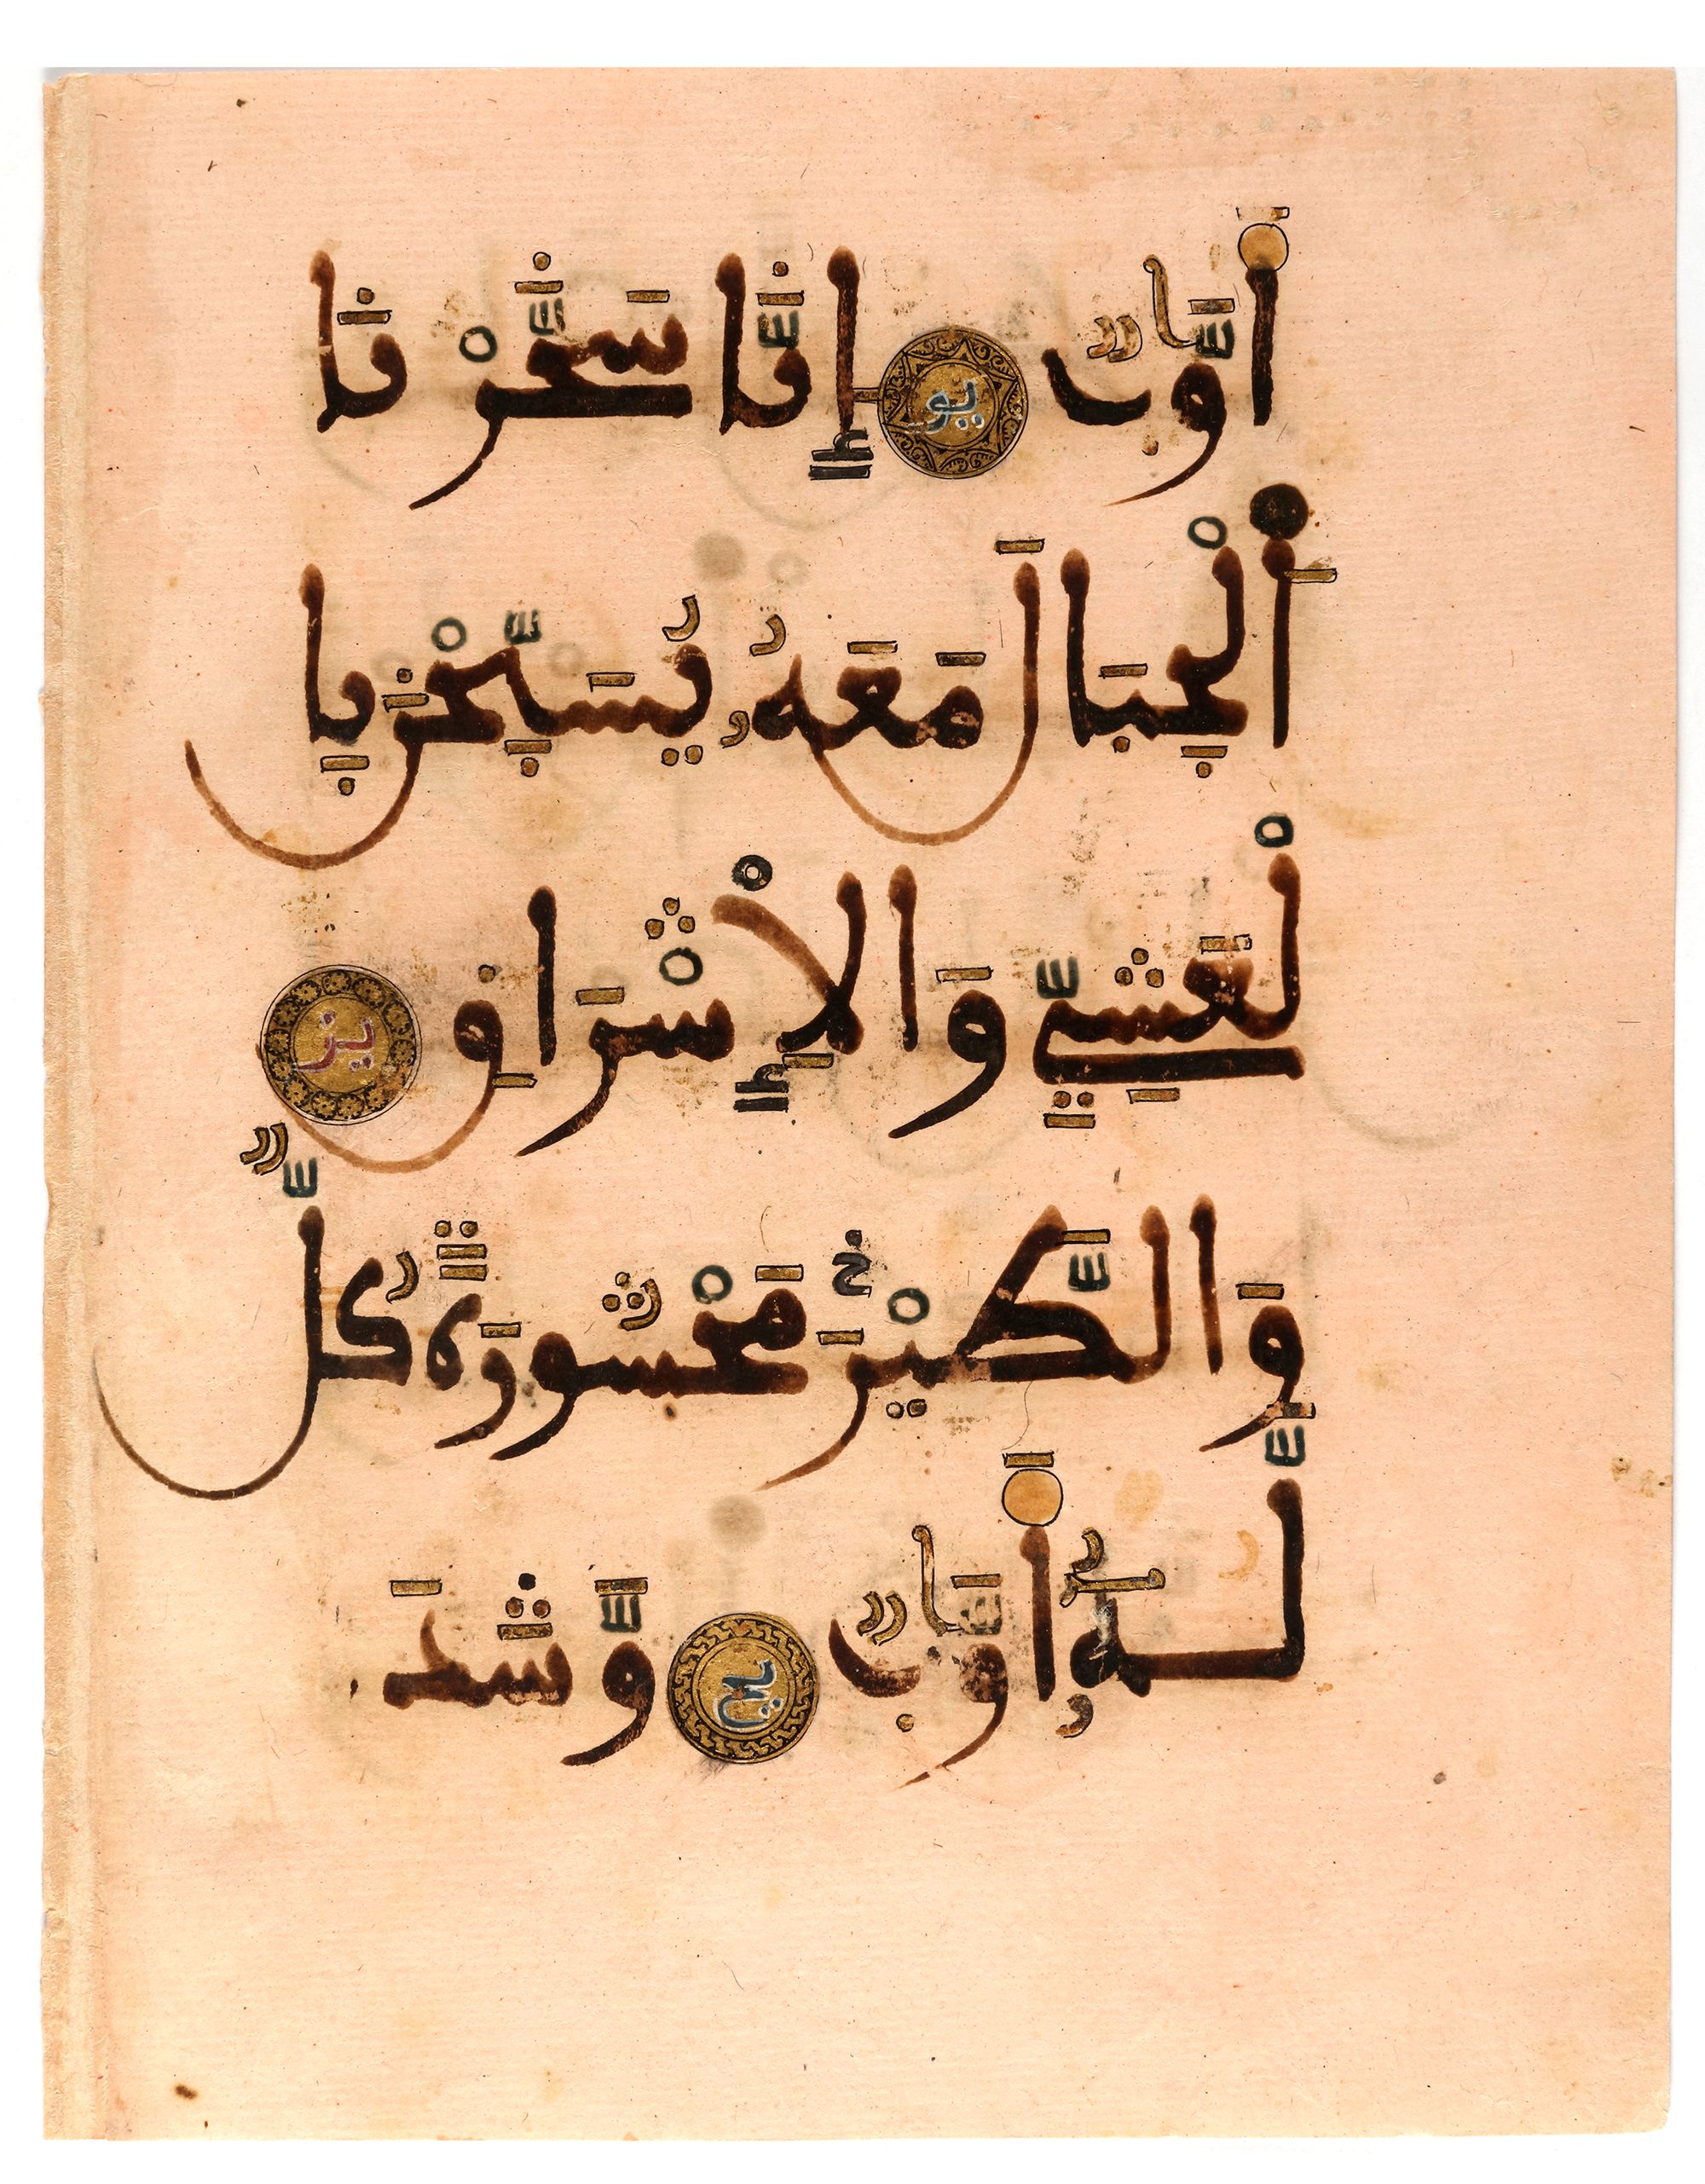 أَوَّابٌ يو إِنَّا سَخَّرْنَا
اَلْجِبَالَ مَعَهُ يُسَبِّحْنَ بِا
لْعَشِيِّ وَالْإِشْرَاقِ يز
وَالطَّيْرَ مَحْشُورَةً كُلٌّ
لَّهُ أَوَّابٌ يح وَّشَدَ